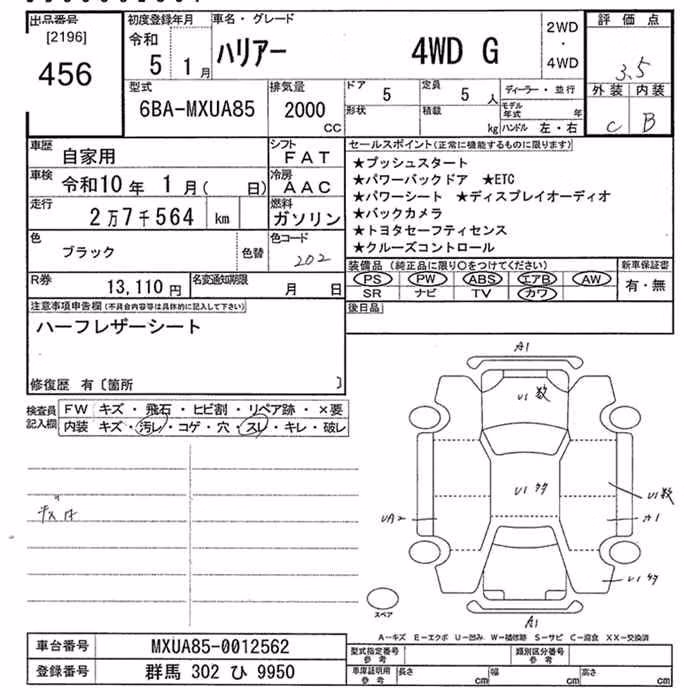 出品番号 初度登録年月 車名・グレード 評価点
[2196] 令和 5 1月 ハリアー 4WD G 2WD・4WD 3.5
456
型式 排気量 ドア 定員 ディーラー・並行 外装 内装
6BA-MXUA85 2000 cc 5 5人 モデル年式 年 C B
形状 積載 kg ハンドル 左・右
車歴 自家用 シフト FAT セールスポイント(正常に機能するものに限ります)
車検 令和10年 1月( 日) 冷房 AAC
★プッシュスタート
★パワーバックドア ★ETC
走行 2万7千564 km 燃料 ガソリン
★パワーシート ★ディスプレイオーディオ
★バックカメラ
★トヨタセーフティセンス
★クルーズコントロール
色 ブラック 色替 色コード 202
装備品(純正品に限り○をつけてください) 新車保証書
PS PW ABS エアB AW 有・無
SR ナビ TV カワ
R券 13,110円 名変通知期限 月 日
後日品
注意事項申告欄(不具合内容等は具体的に記入して下さい)
ハーフレザーシート
修復歴 有〔箇所 〕
検査員記入欄 FW キズ・飛石・ヒビ割・リペア跡・×要
内装 キズ・汚レ・コゲ・穴・スレ・キレ・破レ
A1
U1 数
U1 タタ
U1数
UA2
A1
U1 タタ
A1
スペア
A-キズ E-エクボ U-凹み W-補修跡 S-サビ C-腐食 XX-交換済
車台番号 MXUA85-0012562 型式指定番号 参考 類別区分番号 参考
登録番号 群馬 302 ひ 9950 車庫証明用 参考 長さ cm 幅 cm 高さ cm